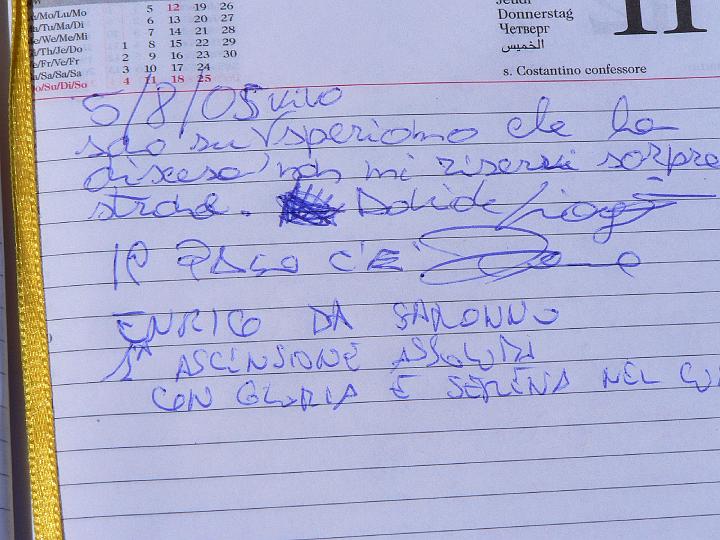 /Mo/Lu/Mo 5 12 19 26
/Tu/Ma/Di 6 13 20 27
/We/Me/Mi 7 14 21 28
/Th/Je/Do 1 8 15 22 29
/Fr/Ve/Fr 2 9 16 23 30
/Sa/Sa/Sa 3 10 17 24
/Su/Di/So 4 11 18 25
Jeudi
Donnerstag
Четверг
الخميس
11
s. Costantino confessore
5/8/05
su speriamo che la
discesa non mi riservi sorpre
strane. Davide
IL C'È
ENRICO DA SARONNO
1A ASCENSIONE ASSOLUTA
CON GLORIA E SERENA NEL